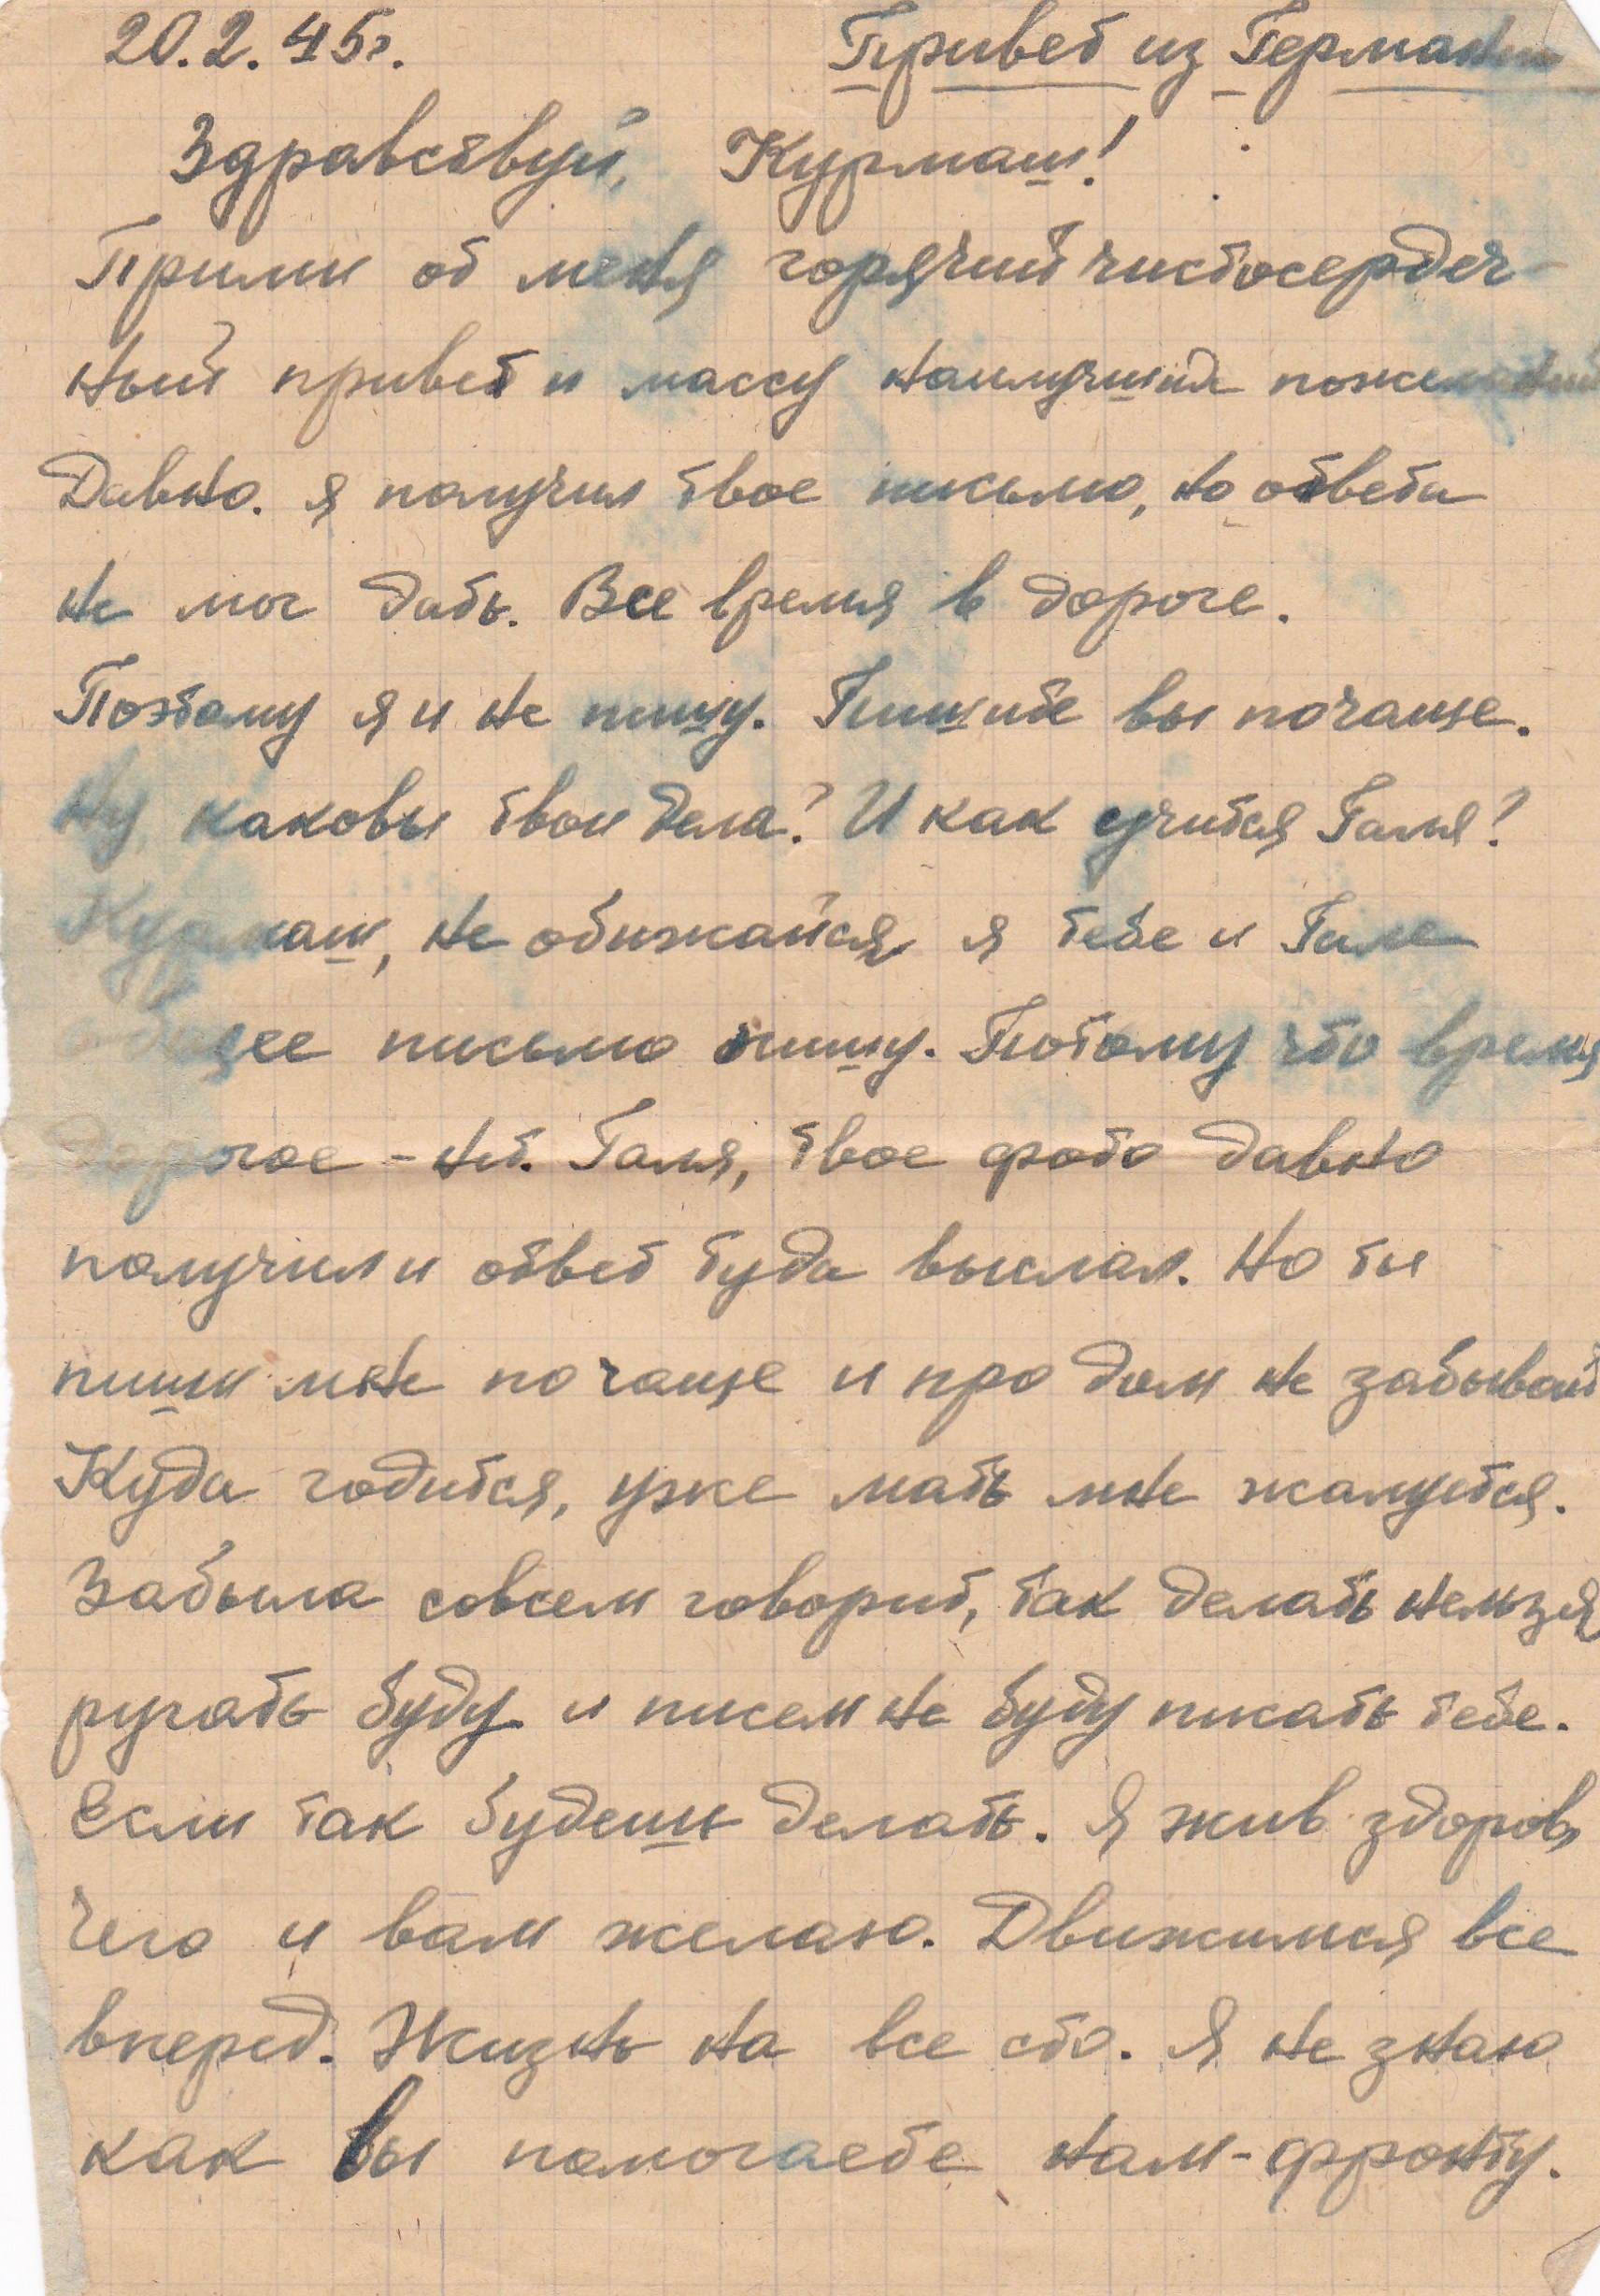 20.2.45г. Привет из Германии
Здравствуй, Курмаш!
Прими от меня горячий чистосердеч-
ный привет и массу наилучших пожеланий
Давно. я получил твое письмо, но ответа
не мог дать. Все время в дороге.
Поэтому я и не пишу. Пишите вы почаще.
Ну, каковы твои дела? И как учится Галя?
Курмаш, не обижайся я тебе и Гале
общее письмо пишу. Потому что время
дорогое - нет. Галя, твое фото давно
получил и ответ туда выслал. Но ты
пиши мне почаще и про дом не забывай
Куда годится, уже мать мне жалуется.
Забыла совсем говорит, так делать нельзя
ругать буду и писем не буду писать тебе.
Если так будешь делать. Я жив здоров,
чего и вам желаю. Движимся все
вперед. Жизнь на все сто. Я не знаю
как вы помогаете нам-фронту.